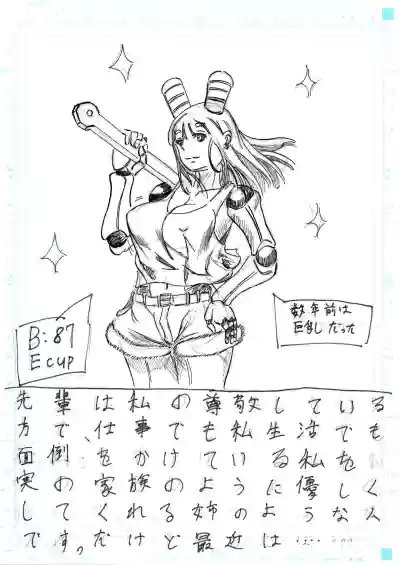 B:87
E cup
数年前は
巨乳だった
先輩は私の尊敬している
方で、仕事でも私生活でも
面倒をかけている私を
実の家族のように優しく
してくれる姉のような人
です。だけど最近は……